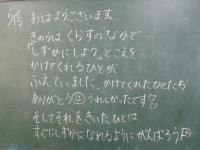 おはようございます
きのうは くらすの なかで
「しずかにしよう」とこえを
かけてくれるひとが
ふえていました。かけてくれたひとたち
ありがとう うれしかったです
そしてそれをきいたひとは
すぐにしずかになれるように がんばろう